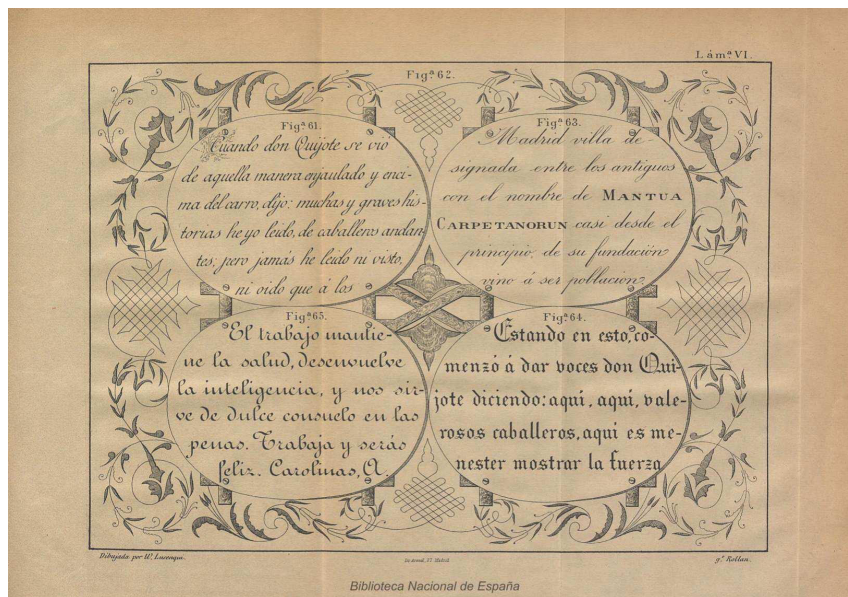 Lám.ª VI.
Figª 62.
Figª 61.
Cuando don Quijote se vio
de aquella manera enjaulado y enci-
ma del carro, dijo: muchas y graves his-
torias he yo leido, de caballeros andan-
tes, pero jamás he leido ni visto,
ni oido que á los
Figª 63.
Madrid villa de-
signada entre los antiguos
con el nombre de MANTUA
CARPETANORUN casi desde el
principio, de su fundación
vino á ser población
Figª 65.
El trabajo mantie-
ne la salud, desenvuelve
la inteligencia, y nos sir-
ve de dulce consuelo en las
penas. Trabaja y serás
feliz. Carolinas, A.
Figª 64.
Estando en esto, co-
menzó á dar voces don Qui-
jote diciendo: aquí, aquí, vale-
rosos caballeros, aqui es me-
nester mostrar la fuerza
Dibujada por
gº. Kollan.
Biblioteca Nacional de España